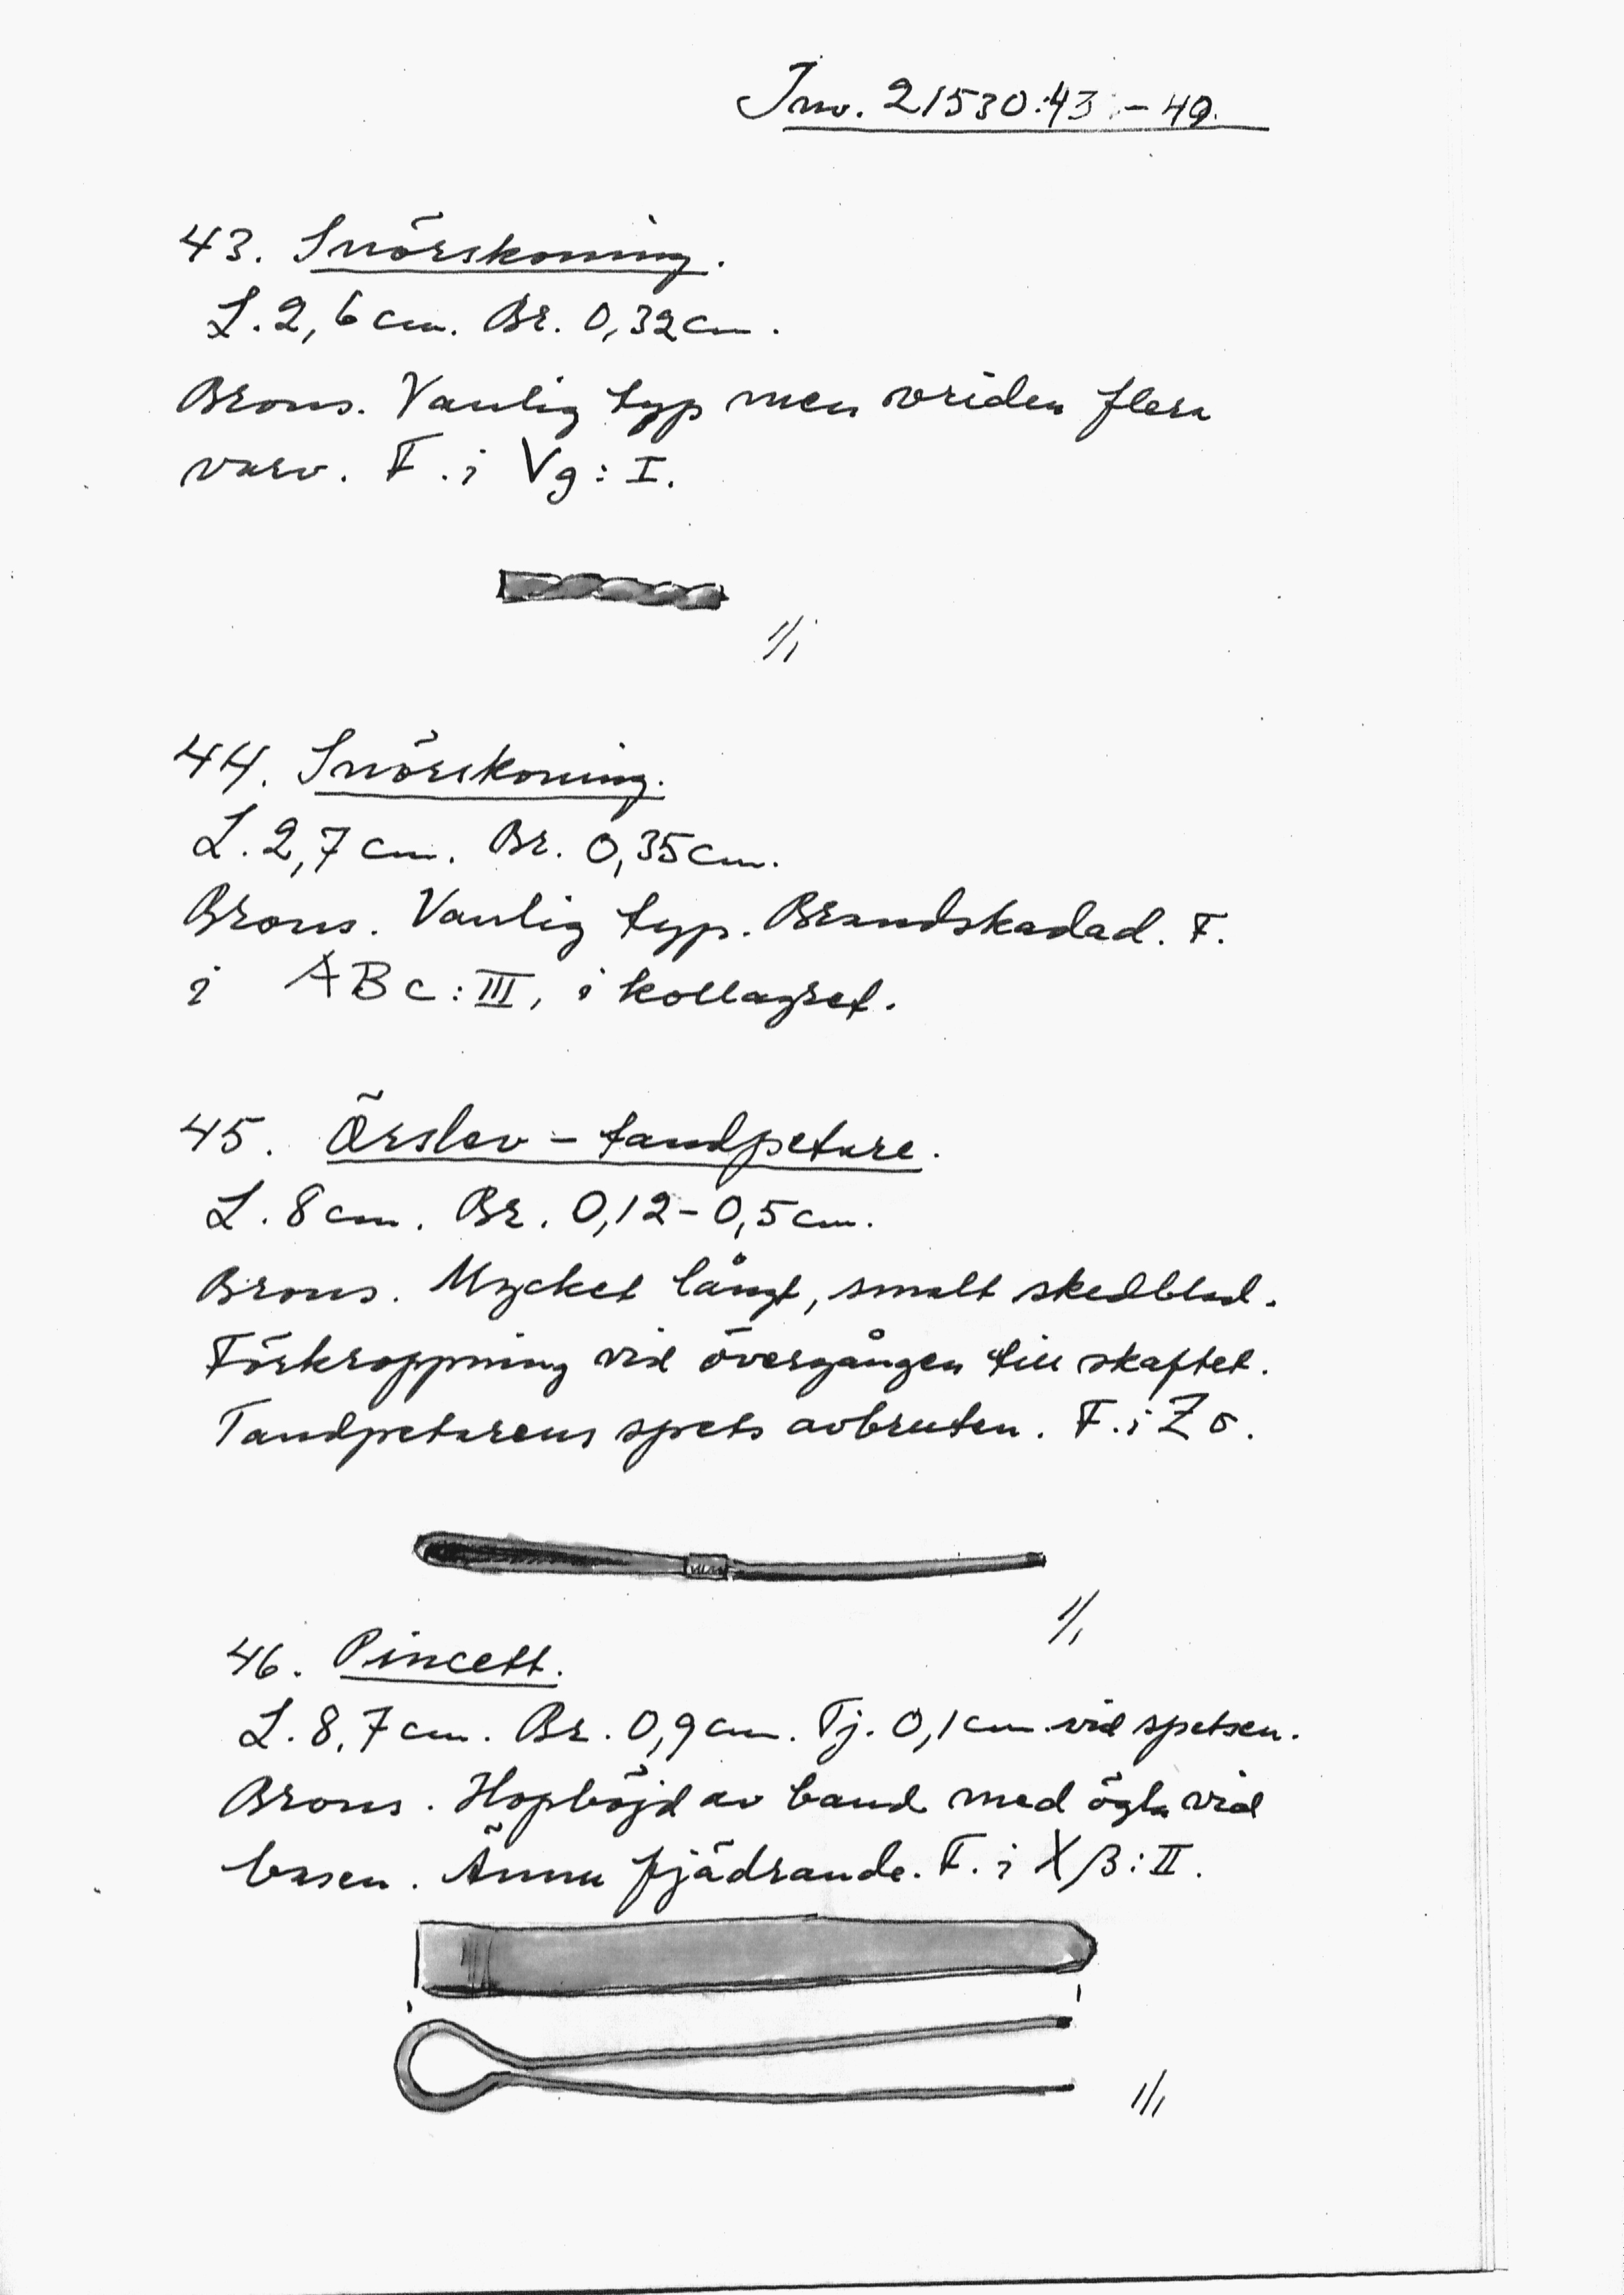 Inv. 21530:43 - 49.
43. Snörskoning.
L. 2,6 cm. Br. 0,32 cm.
Brons. Vanlig typ men vriden flera
varv. F. i Vg: I.
1/1
44. Snörskoning.
L. 2,7 cm. Br. 0,35 cm.
Brons. Vanlig typ. Brandskadad. F.
i ABc: III, i kollagret.
45. Örslev - tandpetare.
L. 8 cm. Br. 0,12 - 0,5 cm.
Brons. Mycket långt, smalt skedblad.
Förkroppning vid övergången till skaftet.
Tandpetarens spets avbruten. F. i Zσ.
1/1
46. Pincett.
L. 8,7 cm. Br. 0,9 cm. Tj. 0,1 cm vid spetsen.
Brons. Hopböjd av band med ögla vid
basen. Ännu fjädrande. F. i Xβ: II.
1/1